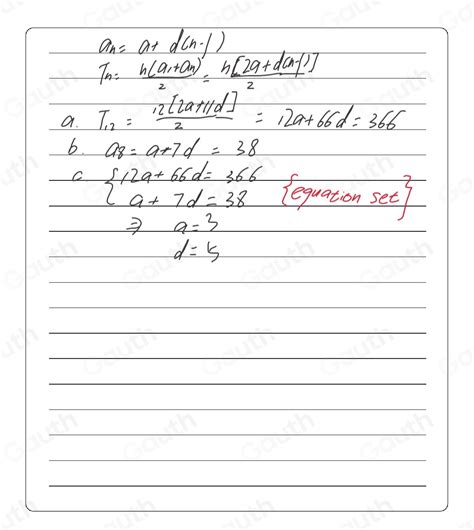 aₙ = a + d(n-1)
Tₙ = n(a₁+aₙ)/2 = n[2a+d(n-1)]/2
a. T₁₂ = 12[2a+11d]/2 = 12a+66d = 366
b. a₈ = a+7d = 38
c. {12a+66d = 366
{a + 7d = 38 {equation set}
⇒ a = 3
d = 5
Gauth